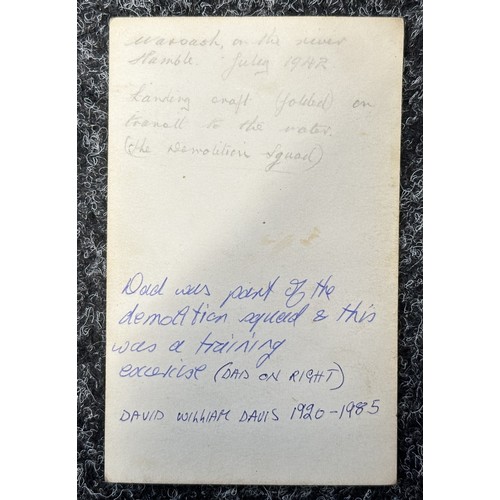 Warsash, on the river
Hamble. July 1942
Landing craft (folded) on
transit to the water.
(the Demolition Squad)
Dad was part of the
demolition squad & this
was a training
excercise (DAD ON RIGHT)
DAVID WILLIAM DAVIS 1920-1985